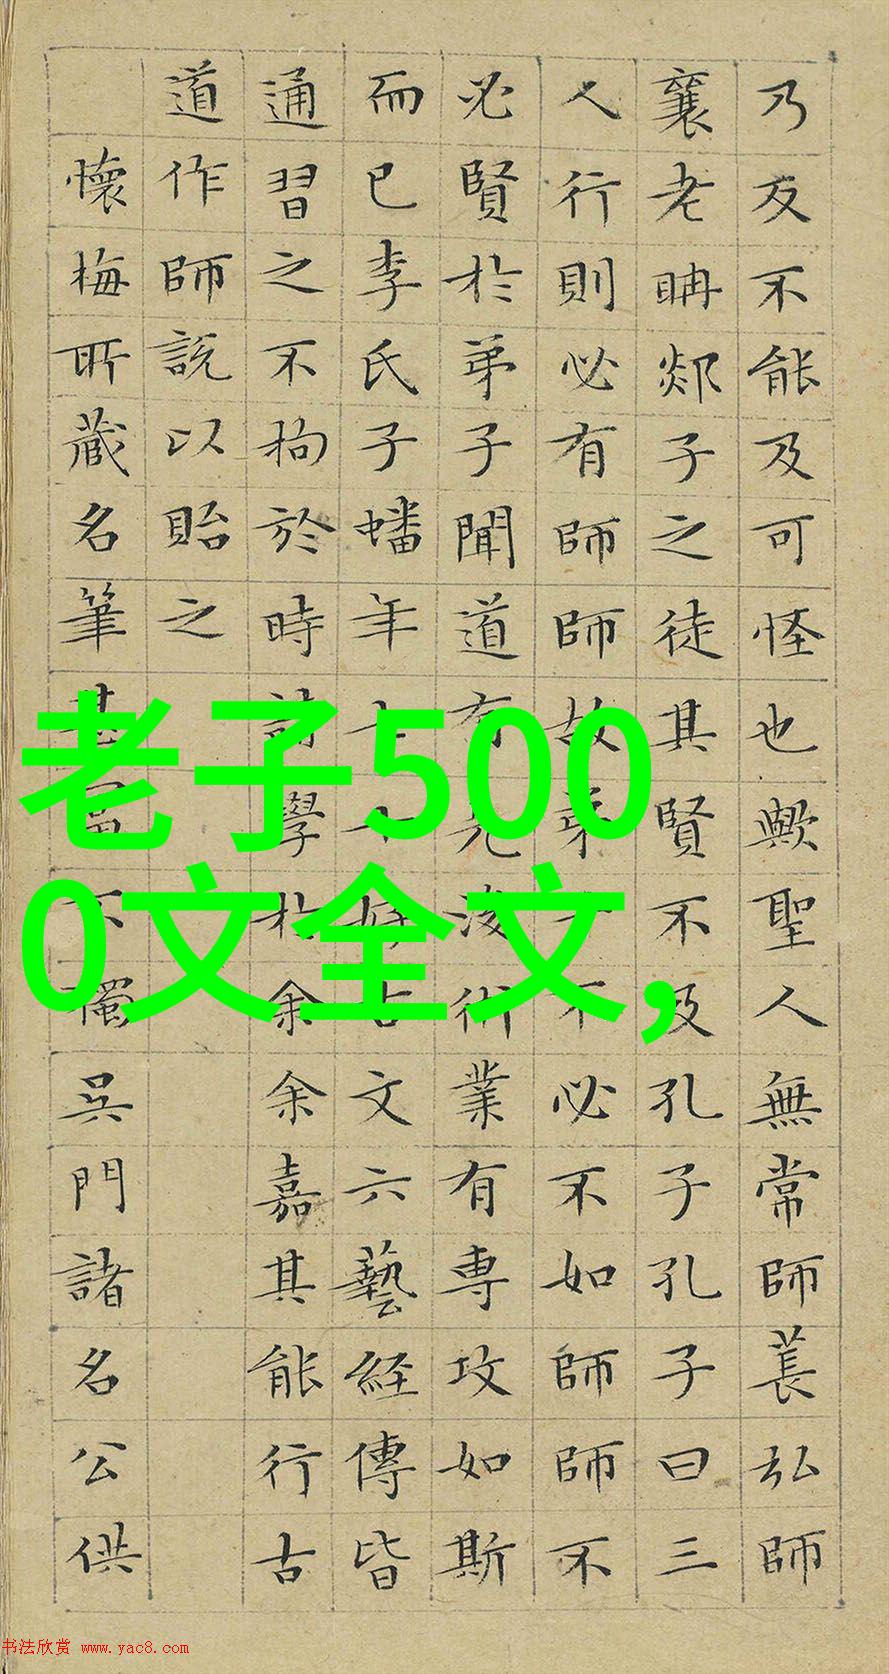 乃反不能及可怪也歟聖人無常師萇弘師
襄老聃郯子之徒其賢不及孔子孔子曰三
人行則必有師師故弟子不必不如師師不
必賢於弟子聞道有先後術業有專攻如斯
而已李氏子蟠年十七好古文六藝經傳皆
通習之不拘於時請學於余余嘉其能行古
道作師說以貽之
懷梅所藏名筆甚富不獨吳門諸名公供
老子500
0文全文,
书法欣赏 www.yac8.com